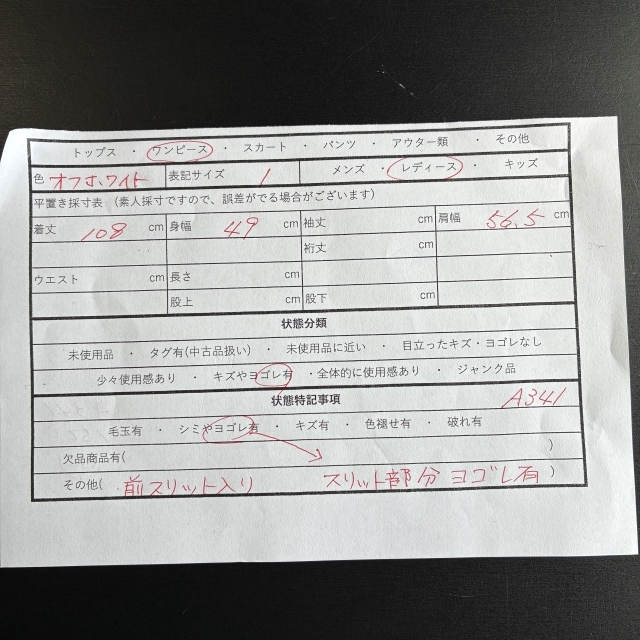 トップス ・ ワンピース ・ スカート ・ パンツ ・ アウター類 ・ その他
色 オフホワイト 表記サイズ 1 メンズ ・ レディース ・ キッズ
平置き採寸表（素人採寸ですので、誤差がでる場合がございます）
着丈 108 cm 身幅 49 cm 袖丈 cm 肩幅 56.5 cm
裄丈 cm
ウエスト cm 長さ cm
股上 cm 股下 cm
状態分類
未使用品 ・ タグ有(中古品扱い) ・ 未使用品に近い ・ 目立ったキズ・ヨゴレなし
少々使用感あり ・ キズやヨゴレ有 ・全体的に使用感あり ・ ジャンク品
状態特記事項 A341
毛玉有 ・ シミやヨゴレ有 ・ キズ有 ・ 色褪せ有 ・ 破れ有
欠品商品有( )
その他( 前スリット入り スリット部分 ヨゴレ有 )